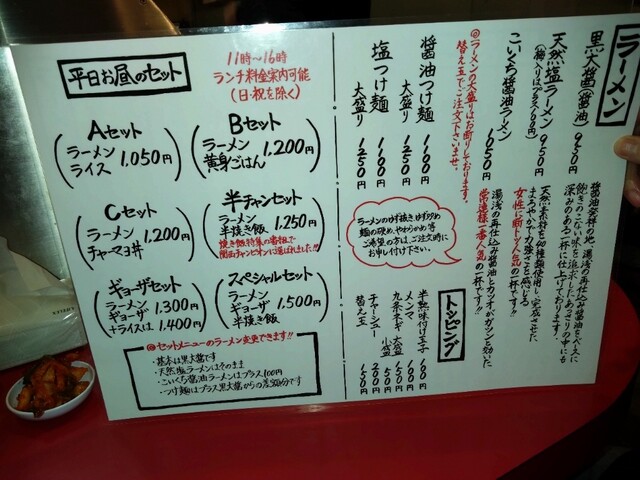 平日お昼のセット
11時〜16時
ランチ料金案内可能
(日・祝を除く)
Aセット
ラーメン
ライス
1,050円
Bセット
ラーメン
黄身ごはん
1,200円
Cセット
ラーメン
チャーマヨ丼
1,200円
半チャンセット
ラーメン
半焼き飯
1,250円
焼き飯特集の番組で
関西チャンピオンに選ばれました!!
ギョーザセット
ラーメン
ギョーザ
1,300円
+ライスは 1,400円
スペシャルセット
ラーメン
ギョーザ
半焼き飯
1,500円
◎セットメニューのラーメン変更できます!!
・基本は黒大醤です
・天然塩ラーメンはそのまま
・こいくち醤油ラーメンはプラス100円
・つけ麺はプラス黒大醤からの差額分です
ラーメン
黒大醤(醤油) 950円
醤油発祥の地、湯浅の再仕込み醤油をベースに
飽きのこない味を追求したあっさりの中にも
深みのある一杯に仕上げております。
天然塩ラーメン 950円
(梅入りはプラス100円)
天然素材を40種類使用し完成させた
まろやかさ+力強さを感じる
女性に新しく人気の一杯です!!
こいくち醤油ラーメン 1050円
湯浅の再仕込み醤油とカツオがガツンと効いた
常連様一番人気の一杯です!!
◎ラーメンの大盛りはお断りしております。
替え玉でご注文下さいませ。
醤油つけ麺 1100円
大盛り 1250円
塩つけ麺 1100円
大盛り 1250円
ラーメンのねぎ抜き
麺の硬め、やわらかめ等
ご希望の方は、ご注文時に
お申し付け下さい。
トッピング
半熟味付け玉子 100円
メンマ 100円
九条ネギ 大盛 150円
小盛 50円
チャーシュー 200円
替え玉 150円